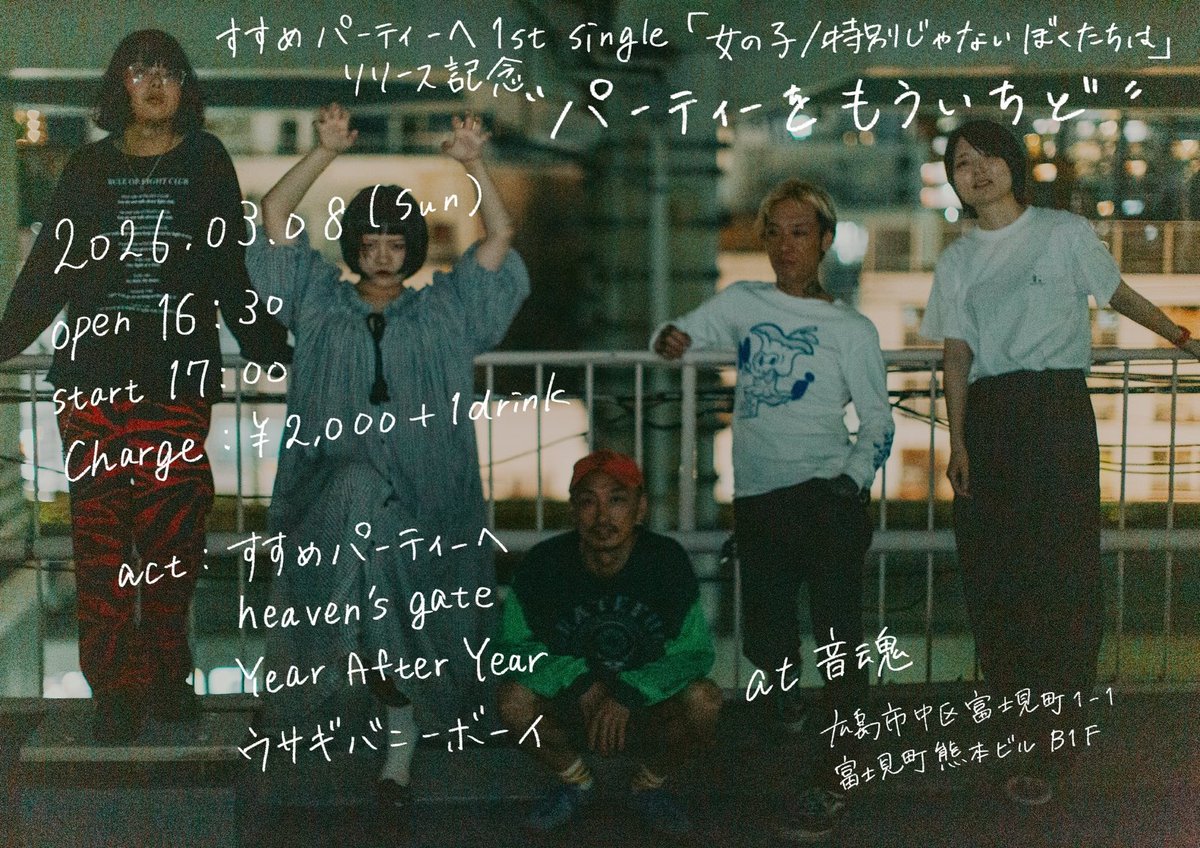 すすめパーティーへ 1st single「女の子/特別じゃないぼくたちは」
リリース記念
"パーティーをもういちど"
2026.03.08 (Sun)
open 16:30
start 17:00
Charge: ¥2,000 + 1drink
act: すすめパーティーへ
heaven's gate
Year After Year
ウサギバニーボーイ
at 音魂
広島市中区富士見町1-1
富士見町熊本ビル B1F
RULE OF FIGHT CLUB